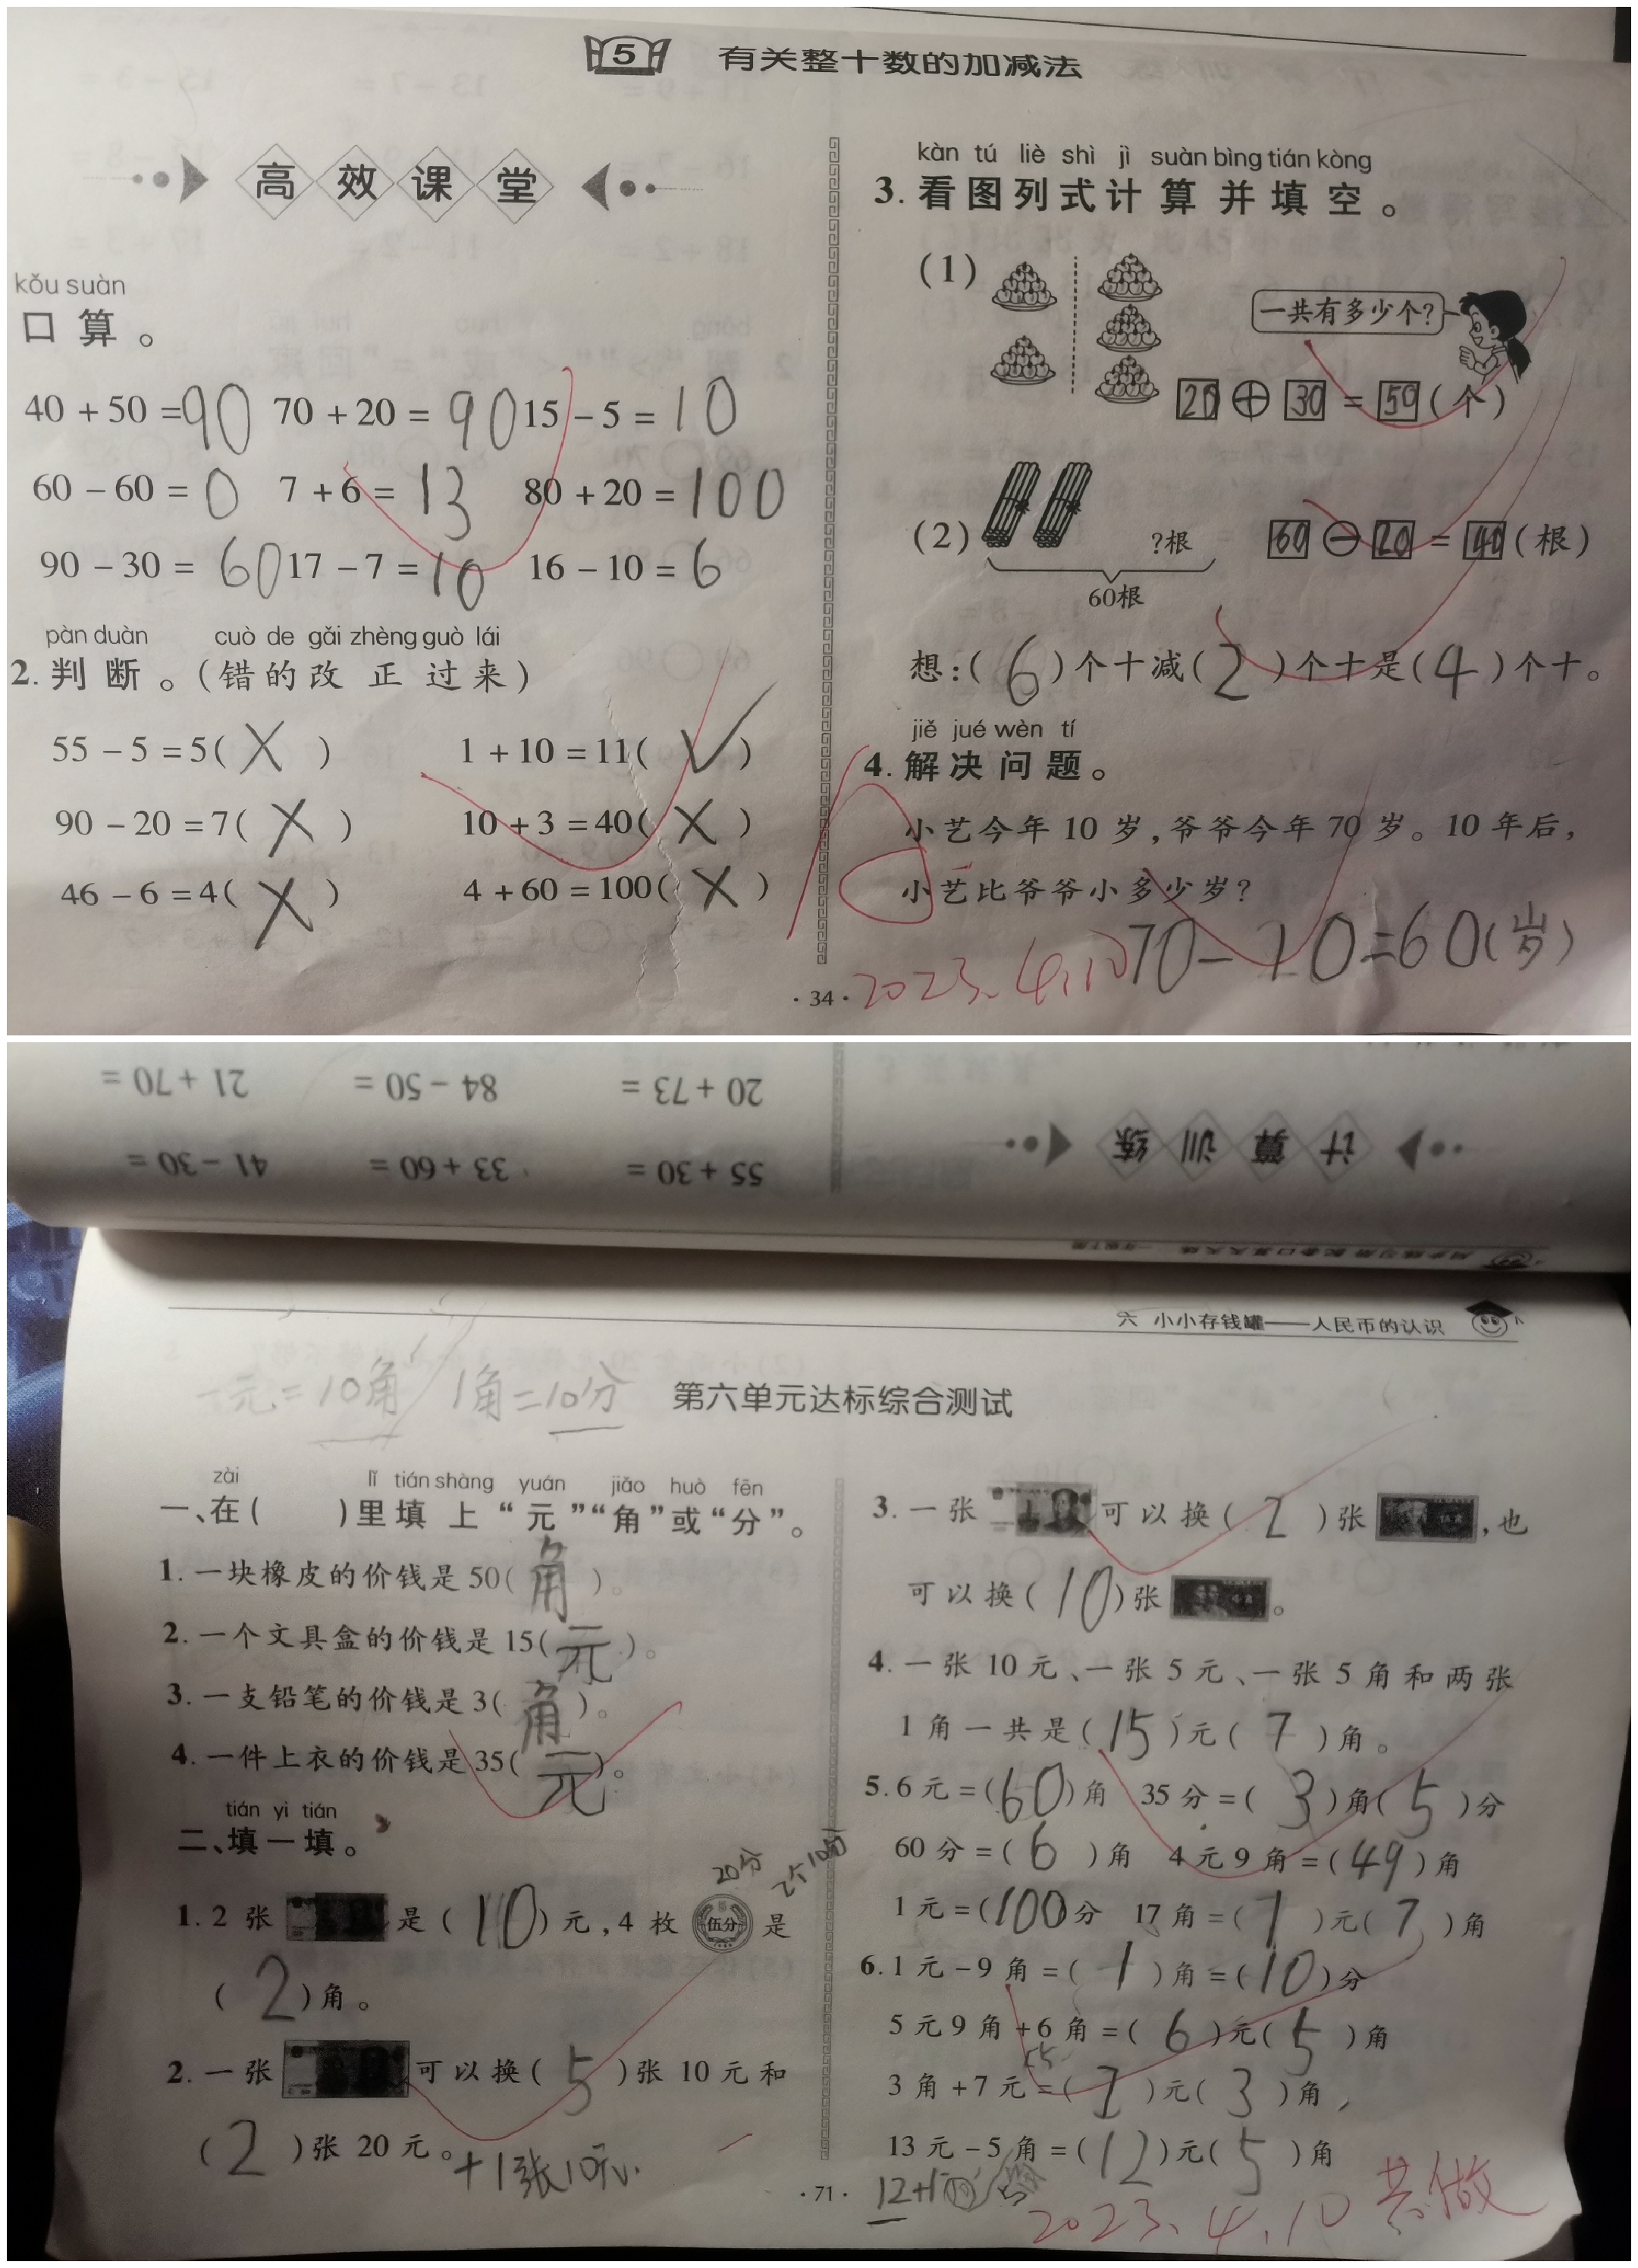 5 有关整十数的加减法
高效课堂
kǒu suàn
口算。
40 + 50 = 90 70 + 20 = 90 15 - 5 = 10
60 - 60 = 0 7 + 6 = 13 80 + 20 = 100
90 - 30 = 60 17 - 7 = 10 16 - 10 = 6
pàn duàn cuò de gǎi zhèng guò lái
2. 判断。(错的改正过来)
55 - 5 = 5( X ) 1 + 10 = 11( √ )
90 - 20 = 7( X ) 10 + 3 = 40( X )
46 - 6 = 4( X ) 4 + 60 = 100( X )
kàn tú liè shì jì suàn bìng tián kòng
3. 看图列式计算并填空。
(1)
一共有多少个?
20 + 30 = 50 (个)
(2) ?根 60 - 20 = 40 (根)
60根
想:( 6 )个十减( 2 )个十是( 4 )个十。
jiě jué wèn tí
4. 解决问题。
小艺今年 10 岁,爷爷今年 70 岁。10 年后,
小艺比爷爷小多少岁?
70 - 10 = 60(岁)
· 34 ·
2023.4.10
21 + 70 = 84 - 50 = 20 + 73 =
41 - 30 = 33 + 60 = 55 + 30 =
计算训练
六 小小存钱罐——人民币的认识
一元=10角 1角=10分
第六单元达标综合测试
zài lǐ tián shàng yuán jiǎo huò fēn
一、在( )里填上“元”“角”或“分”。
1. 一块橡皮的价钱是 50( 角 )。
2. 一个文具盒的价钱是 15( 元 )。
3. 一支铅笔的价钱是 3( 角 )。
4. 一件上衣的价钱是 35( 元 )。
tián yi tián
二、填一填。
20分
1. 2 张 是( 10 )元,4 枚 伍分 是
( 2 )角。
2. 一张 可以换( 5 )张 10 元和
( 2 )张 20 元。
+1张10元.
3. 一张 可以换( 2 )张 ,也
可以换( 10 )张 。
4. 一张 10 元、一张 5 元、一张 5 角和两张
1 角一共是( 15 )元( 7 )角。
5. 6 元 = ( 60 )角 35 分 = ( 3 )角( 5 )分
60 分 = ( 6 )角 4 元 9 角 = ( 49 )角
1 元 = ( 100 )分 17 角 = ( 1 )元( 7 )角
6. 1 元 - 9 角 = ( 1 )角 = ( 10 )分
5 元 9 角 + 6 角 = ( 6 )元( 5 )角
3 角 + 7 元 = ( 7 )元( 3 )角
13 元 - 5 角 = ( 12 )元( 5 )角
· 71 ·
2023.4.10 共做